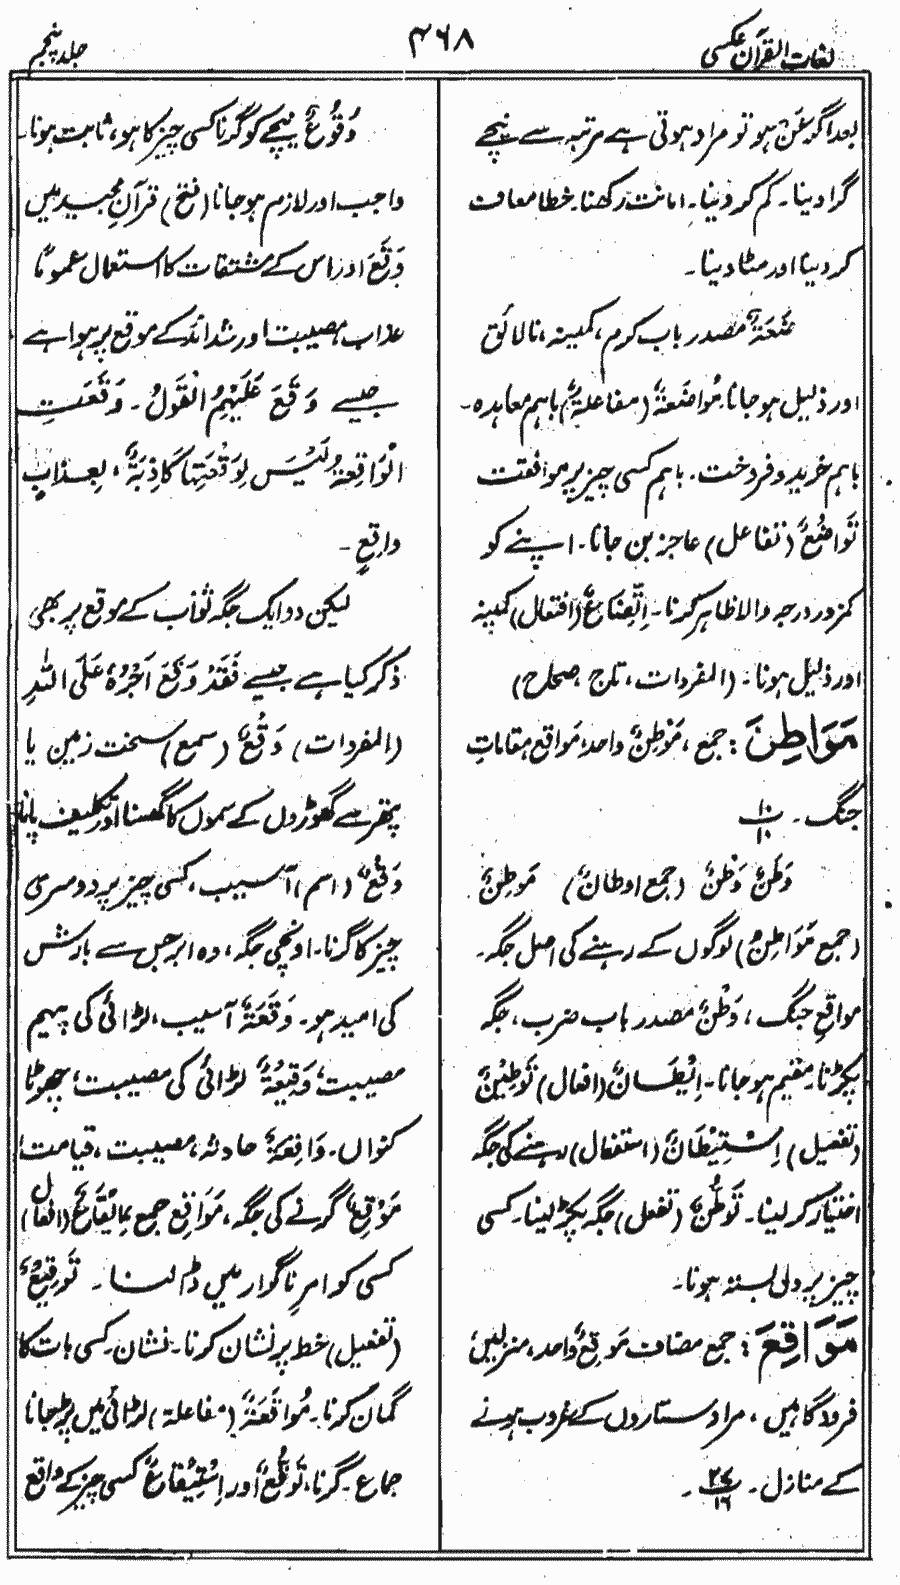 لغات القرآن عکسی
۴۶۸
جلد پنجم
بعد اگر عَنْ ہو تو مراد ہوتی ہے مرتبہ سے نیچے
گرا دینا۔ کم کر دینا۔ امانت رکھنا۔ خطا معاف
کر دینا اور مٹا دینا۔
ضَعَۃٌ مصدر باب کرم، کمینہ، نالائق
اور ذلیل ہو جانا۔ مُوَاضَعَۃٌ (مفاعلۃ) باہم معاہدہ۔
باہم خرید و فروخت۔ باہم کسی چیز پر موافقت
تَوَاضُعٌ (تفاعل) عاجز بن جانا۔ اپنے کو
کمزور درجہ والا ظاہر کرنا۔ اِتِّضَاعٌ (افتعال) کمینہ
اور ذلیل ہونا۔ (المفردات، تاج، صحاح)
مَوَاطِنَ: جمع، مَوْطِنٌ واحد، مَواقع، مقاماتِ
جنگ۔ ۱۰/۱۰
وَطَنٌ وَطْنٌ (جمع اوطانٌ) مَوطِنٌ
(جمع مَوَاطِنُ) لوگوں کے رہنے کی اصل جگہ۔
مواقعِ جنگ، وَطْنٌ مصدر باب ضرب، جگہ
پکڑنا۔ مقیم ہو جانا۔ اِیْطَانٌ (افعال) تَوْطِیْنٌ
(تفعیل) اِسْتِیْطَانٌ (استفعال) رہنے کی جگہ
اختیار کر لینا۔ تَوَطُّنٌ (تفعل) جگہ پکڑ لینا۔ کسی
چیز پر دلی بستہ ہونا۔
مَوَاقِعَ: جمع مضاف مَوقِعٌ واحد، منزلیں
فرودگاہیں، مراد ستاروں کے غروب ہونے
کے منازل۔ ۲۷/۱۶۔
وَقُوْعٌ نیچے کو گرنا کسی چیز کا ہو، ثابت ہونا۔
واجب اور لازم ہو جانا (فتح) قرآن مجید میں
وَقَعَ اور اس کے مشتقات کا استعمال عموماً
عذاب، مصیبت اور شدائد کے موقع پر ہوا ہے
جیسے وَقَعَ عَلَیْہِمُ الْقَوْلُ۔ وَقَعَتِ
الْوَاقِعَۃُ لَیْسَ لِوَقْعَتِہَا کَاذِبَۃٌ، بِعذابٍ
واقعٍ۔
لیکن دو ایک جگہ ثواب کے موقع پر بھی
ذکر کیا ہے جیسے فَقَدْ وَقَعَ اَجْرُہٗ عَلَی اللّٰہِ
(المفردات) وَقُعٌ (سمع) سخت زمین یا
پتھر سے گھوڑوں کے سموں کا گھسنا اور تکلیف پانا
وَقْعٌ (اسم) آسیب، کسی چیز پر دوسری
چیز کا گرنا۔ اونچی جگہ، وہ ابر جس سے بارش
کی امید ہو۔ وَقْعَۃٌ آسیب، لڑائی کی پیہم
مصیبت، وَقِیْعَۃٌ لڑائی کی مصیبت، چھوٹا
کنواں۔ وَاقِعَۃٌ حادثہ، مصیبت، قیامت،
مَوْقِعٌ گرنے کی جگہ، مَوَاقِعُ جمع۔ اِیْقَاعٌ (افعال)
کسی کو امرِ ناگوار میں ڈالنا۔ تَوْقِیْعٌ
(تفعیل) خط پر نشان کرنا۔ نشان۔ کسی بات کا
گمان کرنا۔ مُوَاقَعَۃٌ (مفاعلۃ) لڑائی میں پڑ جانا
جماع۔ گرنا، تَوَقُّعٌ اور اِسْتِیْقَاعٌ کسی چیز کے واقع